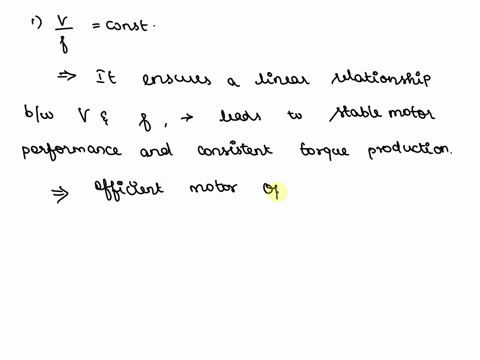 1) V/f = const.
⇒ It ensures a linear relationship
b/w V & f, → leads to stable motor
performance and consistent torque production.
⇒ efficient motor op